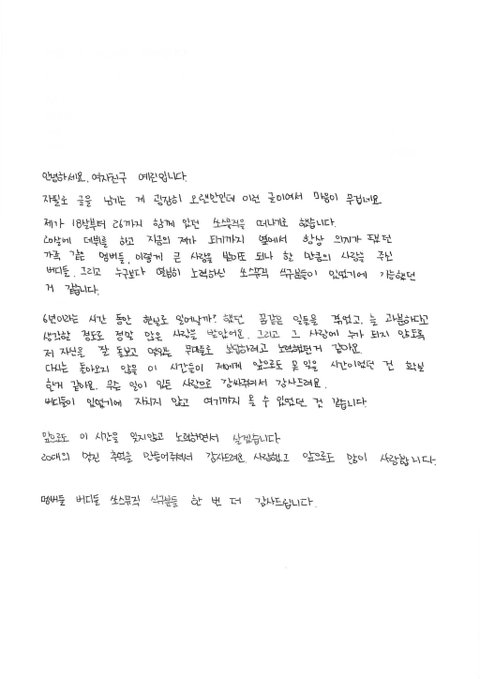 안녕하세요. 여자친구 예린입니다.
자필로 글을 남기는 게 굉장히 오랜만인데 이런 글이여서 마음이 무겁네요.
제가 18살부터 26까지 함께 있던 쏘스뮤직을 떠나게 되었습니다.
20살에 데뷔를 하고 지금의 제가 되기까지 옆에서 항상 의지가 되었던
가족 같은 멤버들, 이렇게 큰 사랑을 받아도 되나 할 만큼의 사랑을 주신
버디들, 그리고 누구보다 열심히 노력하신 쏘스뮤직 식구분들이 있었기에 가능했던
거 같습니다.
6년이라는 시간 동안 현실로 일어날까? 했던 꿈같은 일들을 겪었고, 늘 과분하다고
생각할 정도로 정말 많은 사랑을 받았어요. 그리고 그 사랑에 누가 되지 않도록
저 자신을 잘 돌보고 멋있는 무대들로 보답하려고 노력했던거 같아요.
다시는 돌아오지 않을 이 시간들이 저에게 앞으로도 못 잊을 시간이었던 건 확실
한거 같아요. 무슨 일이 있든 사랑으로 감싸줘여서 감사드려요.
버디들이 있었기에 지치지 않고 여기까지 올 수 있었던 건 같습니다.
앞으로도 이 시간을 잊지않고 노력하면서 살겠습니다
20대의 멋진 추억을 만들어주셔서 감사드려요. 사랑했고 앞으로도 많이 사랑합니다.
멤버들 버디들 쏘스뮤직 식구분들 한 번 더 감사드립니다.